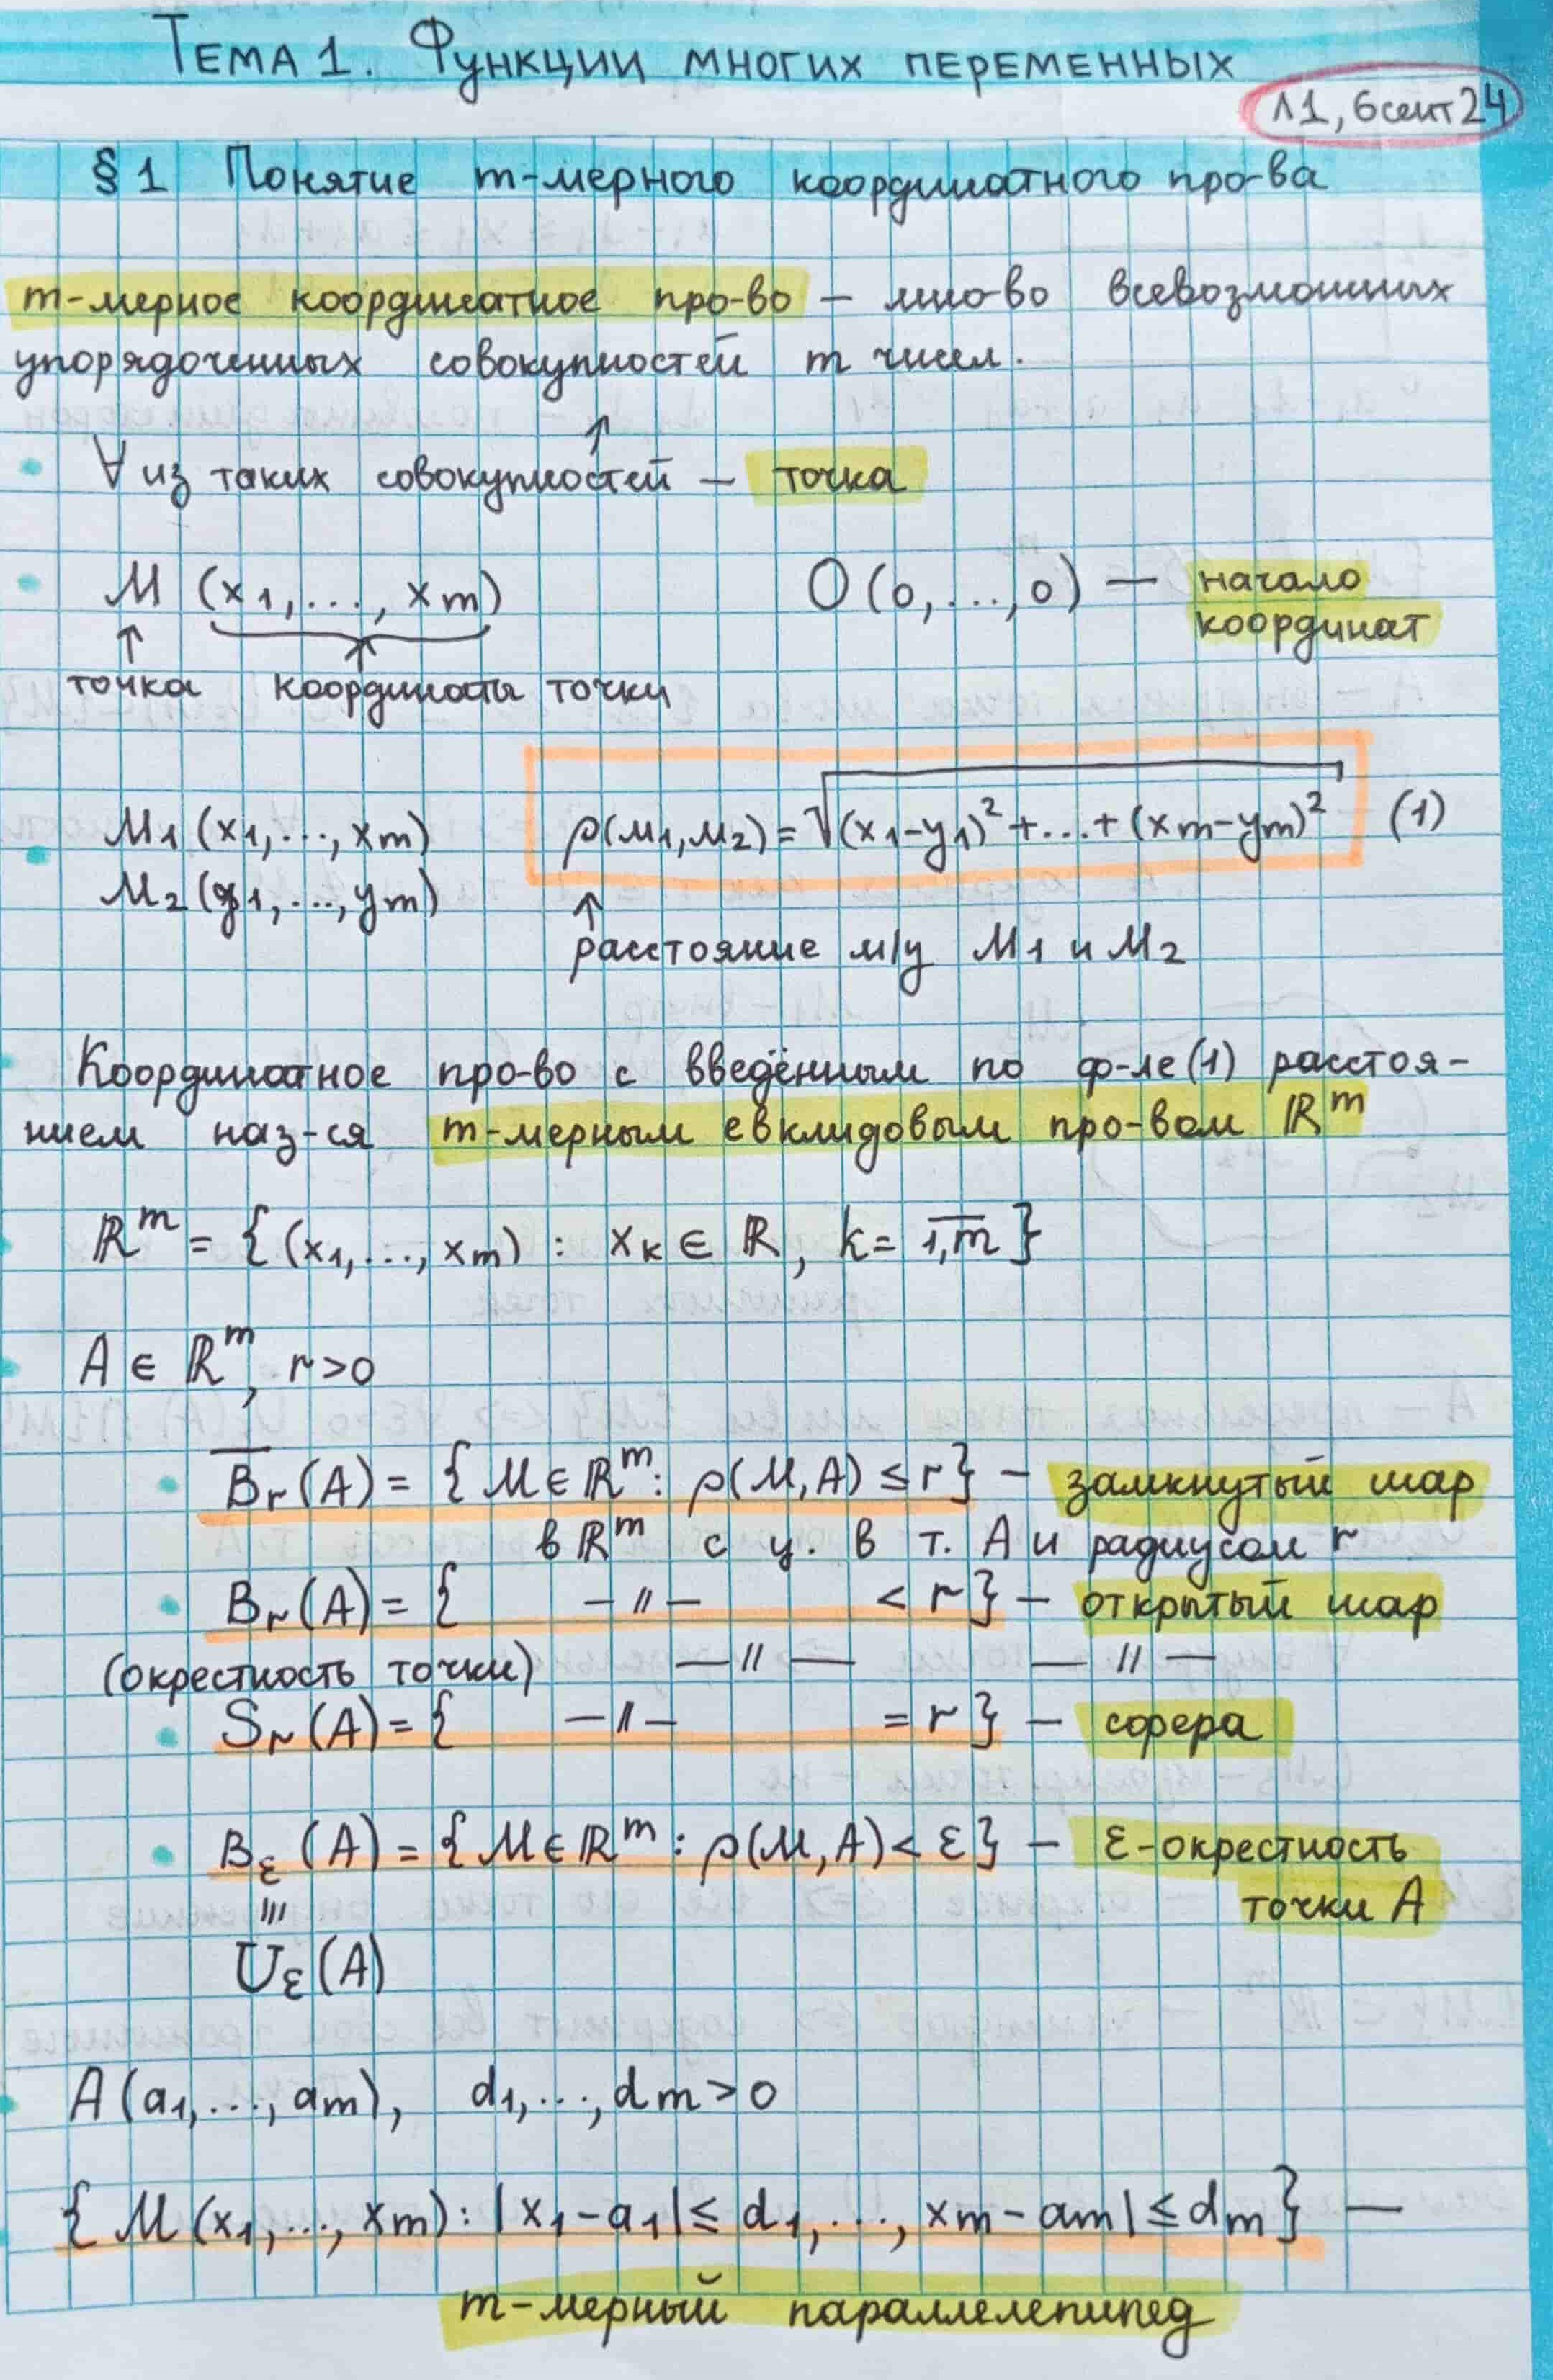 Тема 1. Функции многих переменных
Л1, 6 сент 24
§1 Понятие m-мерного координатного про-ва
m-мерное координатное про-во — мно-во всевозможных
упорядоченных совокупностей m чисел.
↑
∀ из таких совокупностей — точка
M (x₁,...,xₘ)   O(0,...,0) — начало
координат
↑ ↑
точка координаты точки
M₁(x₁,...,xₘ)   ρ(M₁,M₂) = √((x₁-y₁)²+...+(xₘ-yₘ)²)   (1)
M₂(y₁,...,yₘ)   ↑
расстояние м/у M₁ и M₂
Координатное про-во с введённым по ф-ле (1) расстоя-
нием наз-ся m-мерным евклидовым про-вом ℝᵐ
ℝᵐ = {(x₁,...,xₘ) : xₖ ∈ ℝ, k = 1,m̅}
A ∈ ℝᵐ, r>0
B̅ᵣ(A) = {M ∈ ℝᵐ: ρ(M,A) ≤ r} — замкнутый шар
в ℝᵐ с ц. в т. A и радиусом r
Bᵣ(A) = { —//— < r} — открытый шар
(окрестность точки) —//— —//—
Sᵣ(A) = { —//— = r} — сфера
B_ε(A) = {M ∈ ℝᵐ : ρ(M,A) < ε} — ε-окрестность
точки A
|||
U_ε(A)
A(a₁,...,aₘ), d₁,...,dₘ > 0
{M(x₁,...,xₘ): |x₁-a₁| ≤ d₁,..., xₘ-aₘ| ≤ dₘ} —
m-мерный параллелепипед